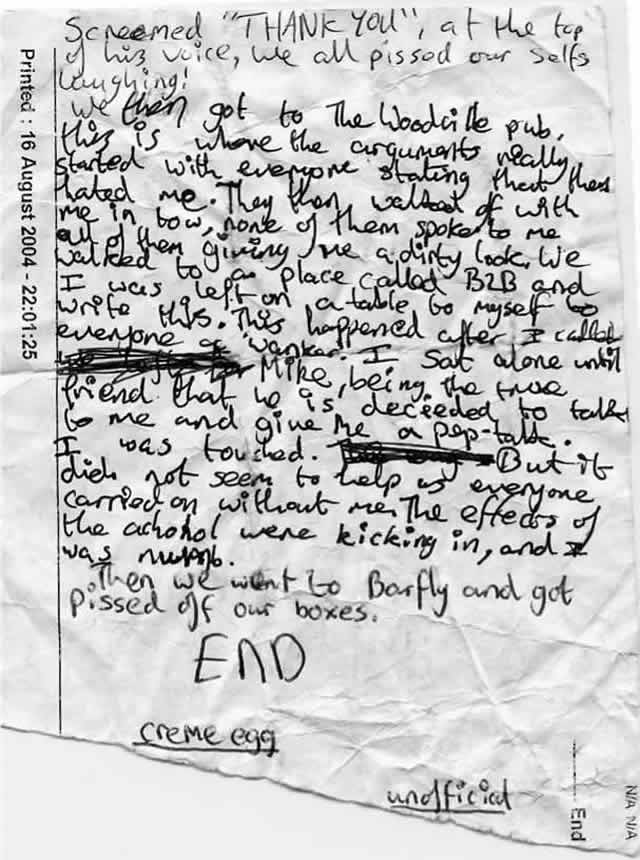 Screemed "THANK YOU", at the top
of his voice, we all pissed our selfs
laughing!
We then got to The Woodville pub,
this is where the arguments really
started with everyone stating that they
hated me. They then walked of with
me in tow, none of them spoke to me
all of them giving me a dirty look. We
walked to a place called B2B and
I was left on a table to myself to
write this. This happened after I called
everyone a wanker. I sat alone until
Mike, being the true
friend that he is deceeded to talk
to me and give me a pep-talk.
I was touched. But it
did not seem to help us everyone
carried on without me. The effects of
the acholol were kicking in, and I
was numb.
Then we went to Barfly and got
pissed off our boxes.
END
creme egg
unofficial
Printed : 16 August 2004 - 22:01:25
End
N/A N/A